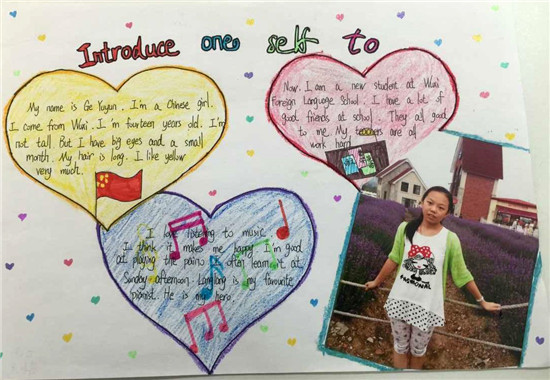 Introduce one self to
My name is Ge Yuyun. I'm a Chinese girl.
I come from Wuxi. I'm fourteen years old. I'm
not tall. But I have big eyes and a small
month. My hair is long. I like yellow
very much.
Now. I am a new student at Wuxi
Foreign Language School. I have a lot of
good friends at school. They all good
to me. My teachers are all
work hard.
I love listening to music.
I think it makes me happy. I'm good
at playing the paino. I often learn it at
Sunday afternoon. Langlang is my favourite
pianist. He is my hero.
FASHIONAL